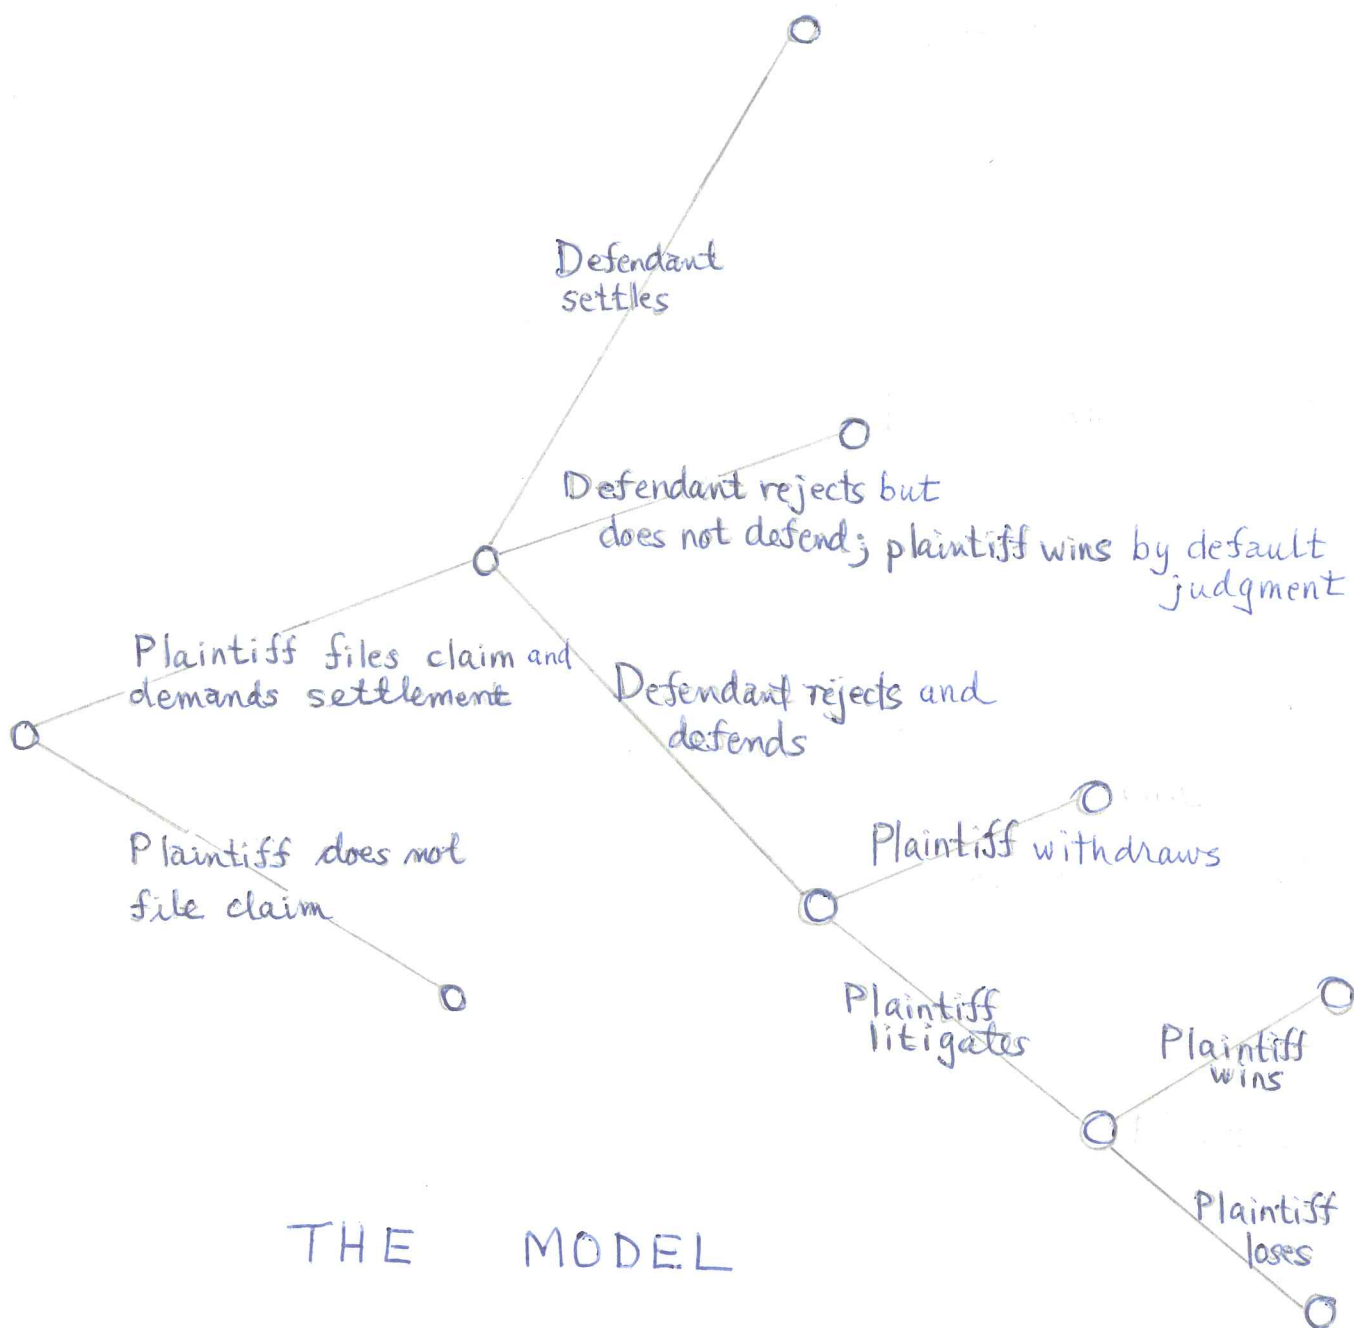 Defendant
settles
Defendant rejects but
does not defend; plaintiff wins by default
judgment
Plaintiff files claim and
demands settlement
Defendant rejects and
defends
Plaintiff does not
file claim
Plaintiff withdraws
Plaintiff
litigates
Plaintiff
wins
Plaintiff
loses
THE MODEL